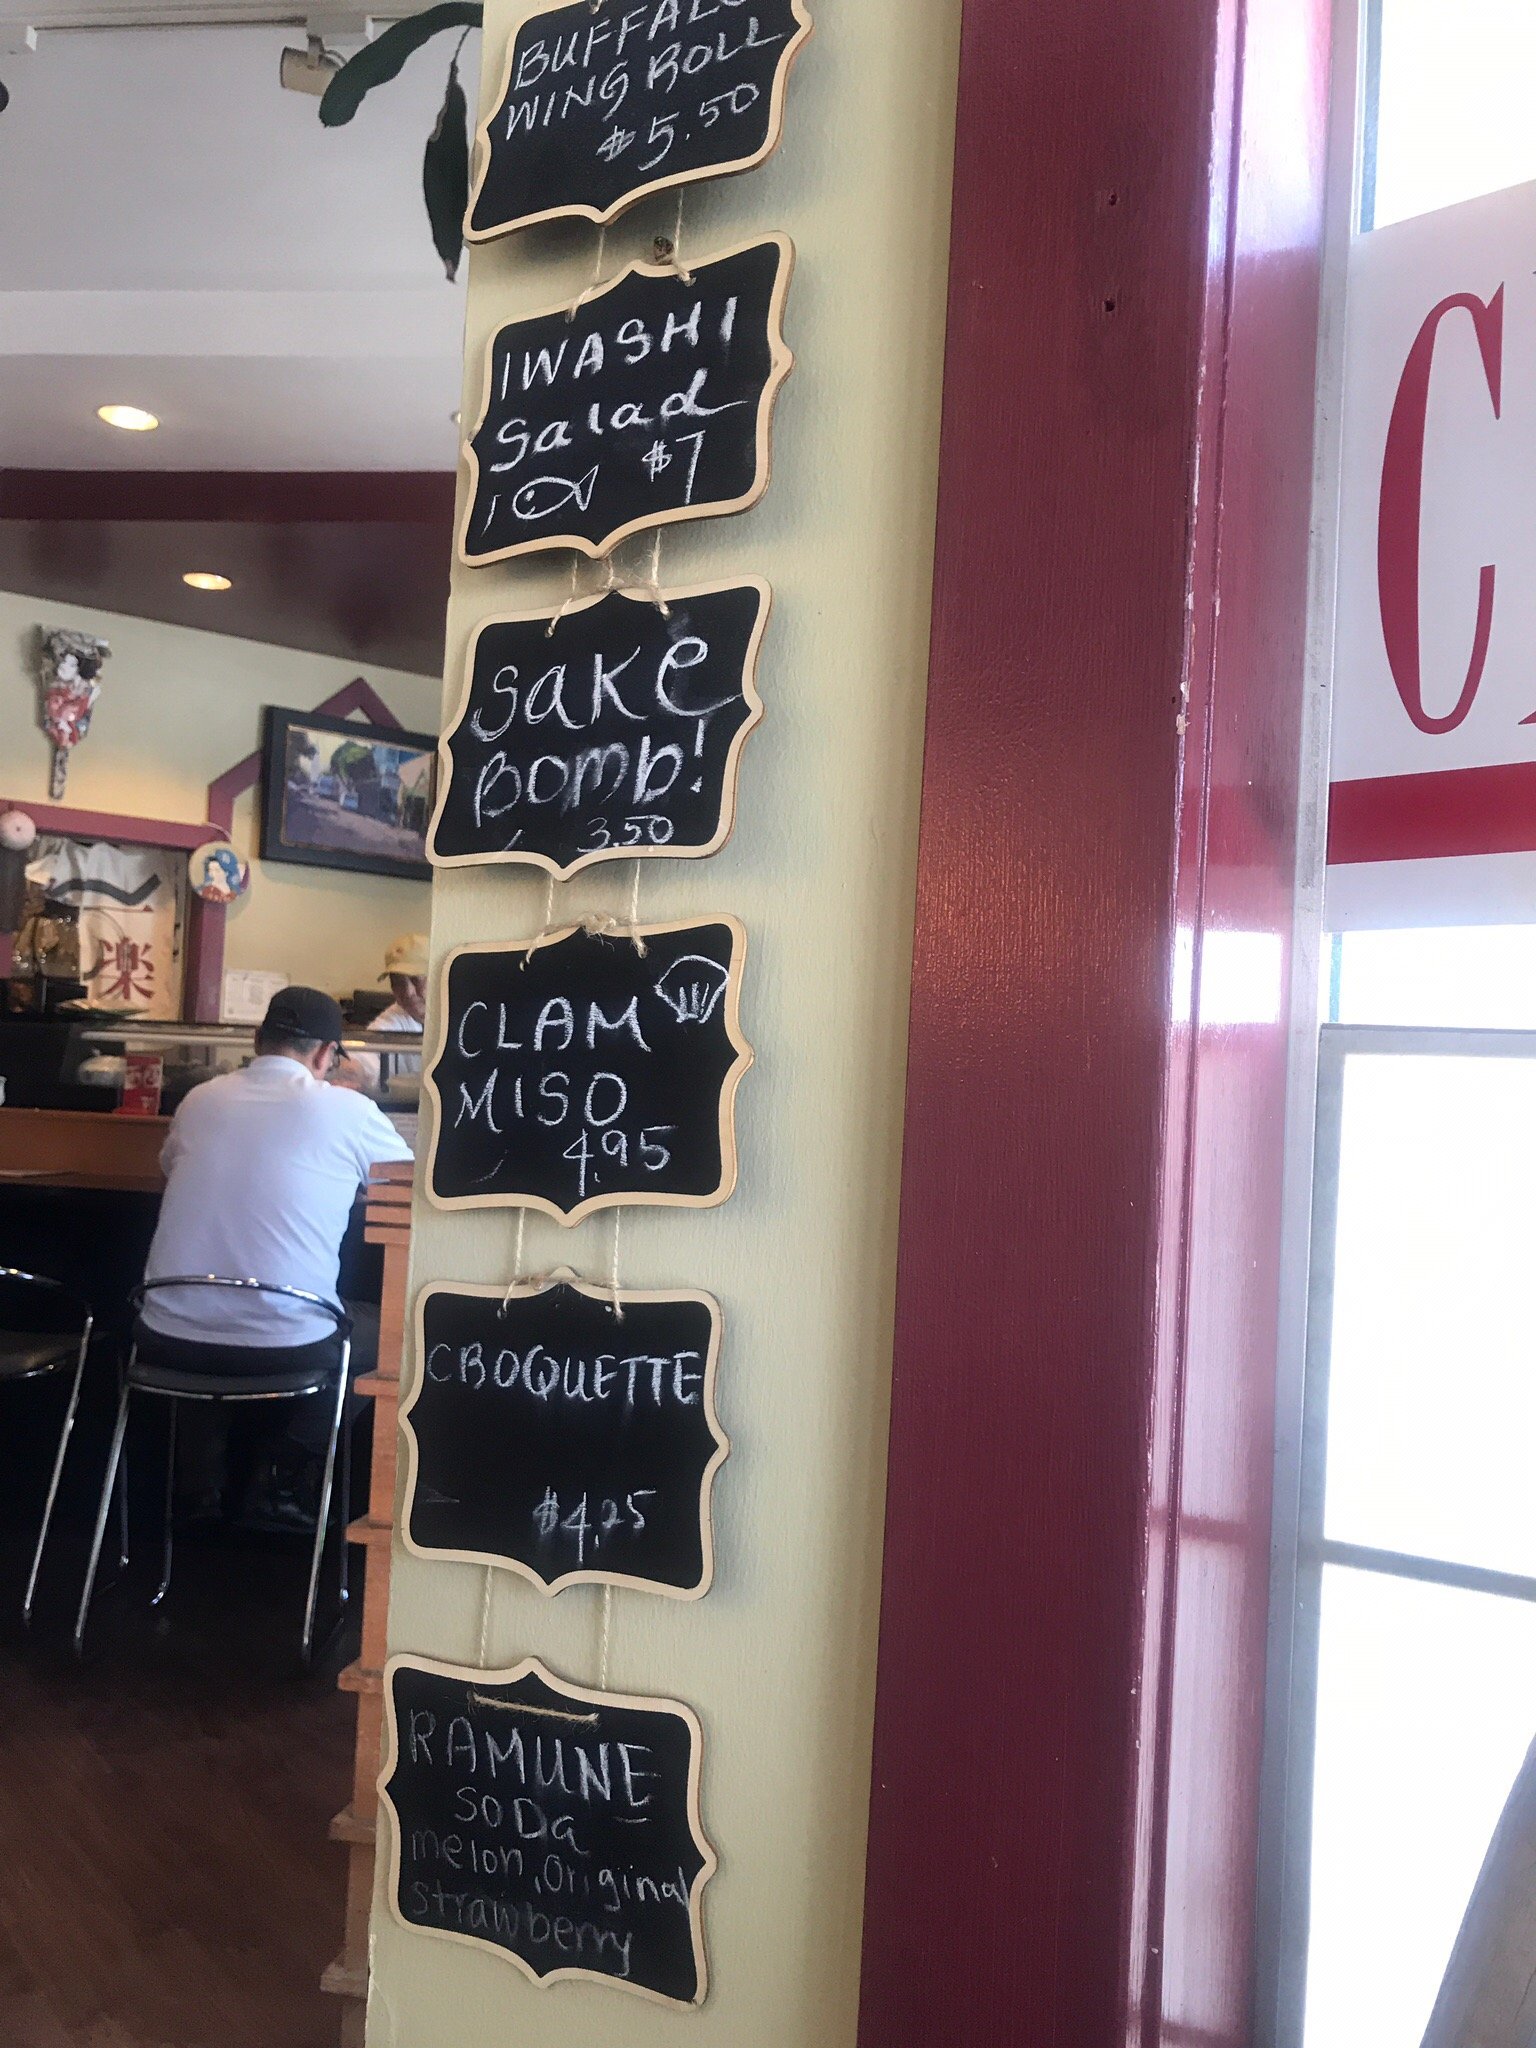 BUFFALO
WING ROLL
$5.50
IWASHI
Salad
$7
Sake
Bomb!
3.50
CLAM
MISO
4.95
CROQUETTE
$4.25
RAMUNE
SODa
melon, Original
strawberry
一
楽
C